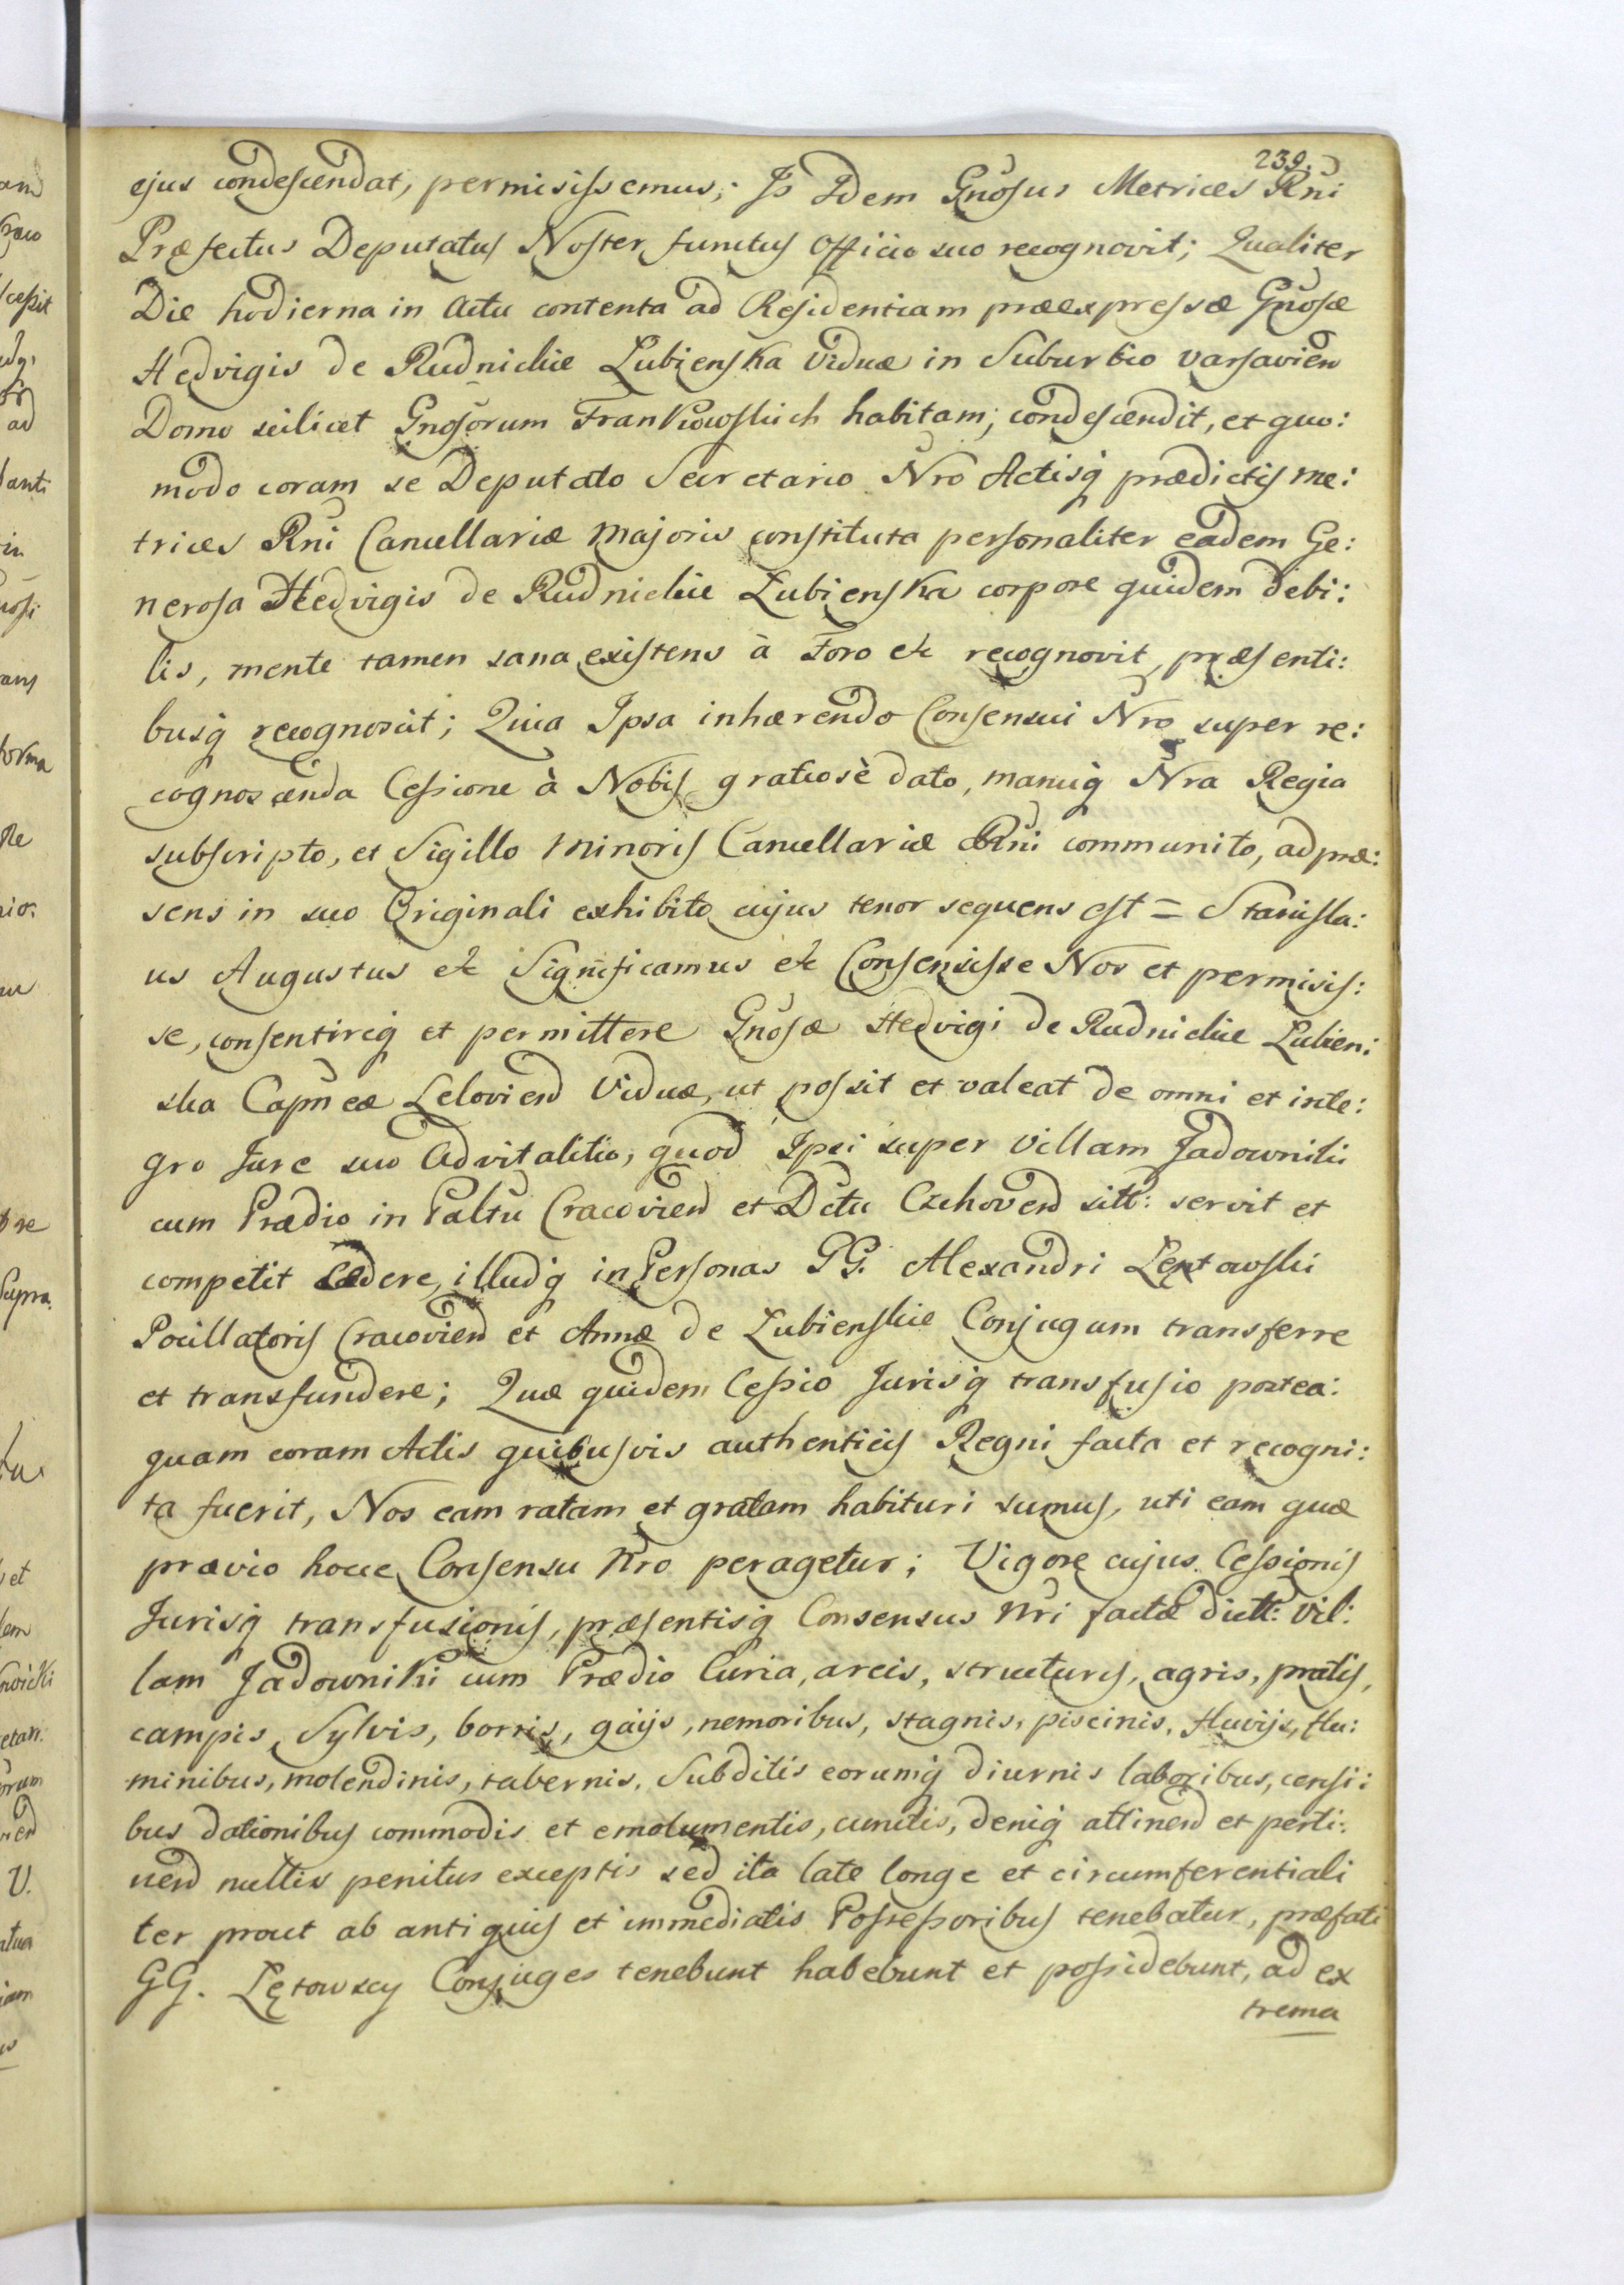 239.
ejus condescendat, permisissemus; Is Idem Gnosus Metrices Rni
Præfectus Deputatus Noster functus Officio suo recognovit; Qualiter
Die hodierna in Actu contenta ad Residentiam præexpressæ Gnosæ
Hedvigis de Rudnickie Lubienska Viduæ in Suburbio Varsavien
Domo scilicet Gnosorum Frankowskich habitam; condescendit, et quo:
modo coram se Deputato Secretario Nro Actisq prædictis me:
trices Rni Cancellariæ Majoris constituta personaliter eadem Ge:
nerosa Hedvigis de Rudnickie Lubienska corpore quidem debi:
lis, mente tamen sana existens à Foro etc recognovit, præsenti:
busq recognoscit; Quia Ipsa inhærendo Consensui Nro super re:
cognoscenda Cessione à Nobis gratiosè dato, manuq Nra Regia
subscripto, et Sigillo Minoris Cancellariæ Rni communito, ad præ:
sens in suo Originali exhibito cujus tenor sequens est = Stanisla:
us Augustus etc Significamus etc Consensisse Nos et permisis:
se, consentireq et permittere Gnosæ Hedvigi de Rudnickie Lubien:
ska Capneæ Lelovien Viduæ, ut possit et valeat de omni et inte:
gro Jure suo Advitalitio, quod Ipsi super Villam Jadowniki
cum Prædio in Paltu Cracovien et Dctu Czchoven sitt: servit et
competit cedere, illudq in Personas GG. Alexandri Lentowski
Pocillatoris Cracovien et Annæ de Lubienskie Conjugum transferre
et transfundere; Quæ quidem Cessio Jurisq transfusio postea:
quam coram Actis quibusvis authenticis Regni facta et recogni:
ta fuerit, Nos eam ratam et gratam habituri sumus, uti eam quæ
prævio hocce Consensu Nro peragetur; Vigore cujus Cessionis
Jurisq transfusionis, præsentisq Consensus Nri factæ dictt: Vil:
lam Jadowniki cum Prædio Curia, areis, structuris, agris, pratis,
campis, Sylvis, borris, gaijs, nemoribus, stagnis, piscinis, fluvijs, flu:
minibus, molendinis, tabernis, Subditis eorumq diurnis laboribus, censi:
bus dationibus commodis et emolumentis, cunctis, deniq attinen et perti:
nen nullis penitus exceptis sed ita late longe et circumferentiali
ter prout ab antiquis et immediatis Possessoribus tenebatur, præfati
GG. Lętowscy Conjuges tenebunt habebunt et possidebunt, ad ex
trema